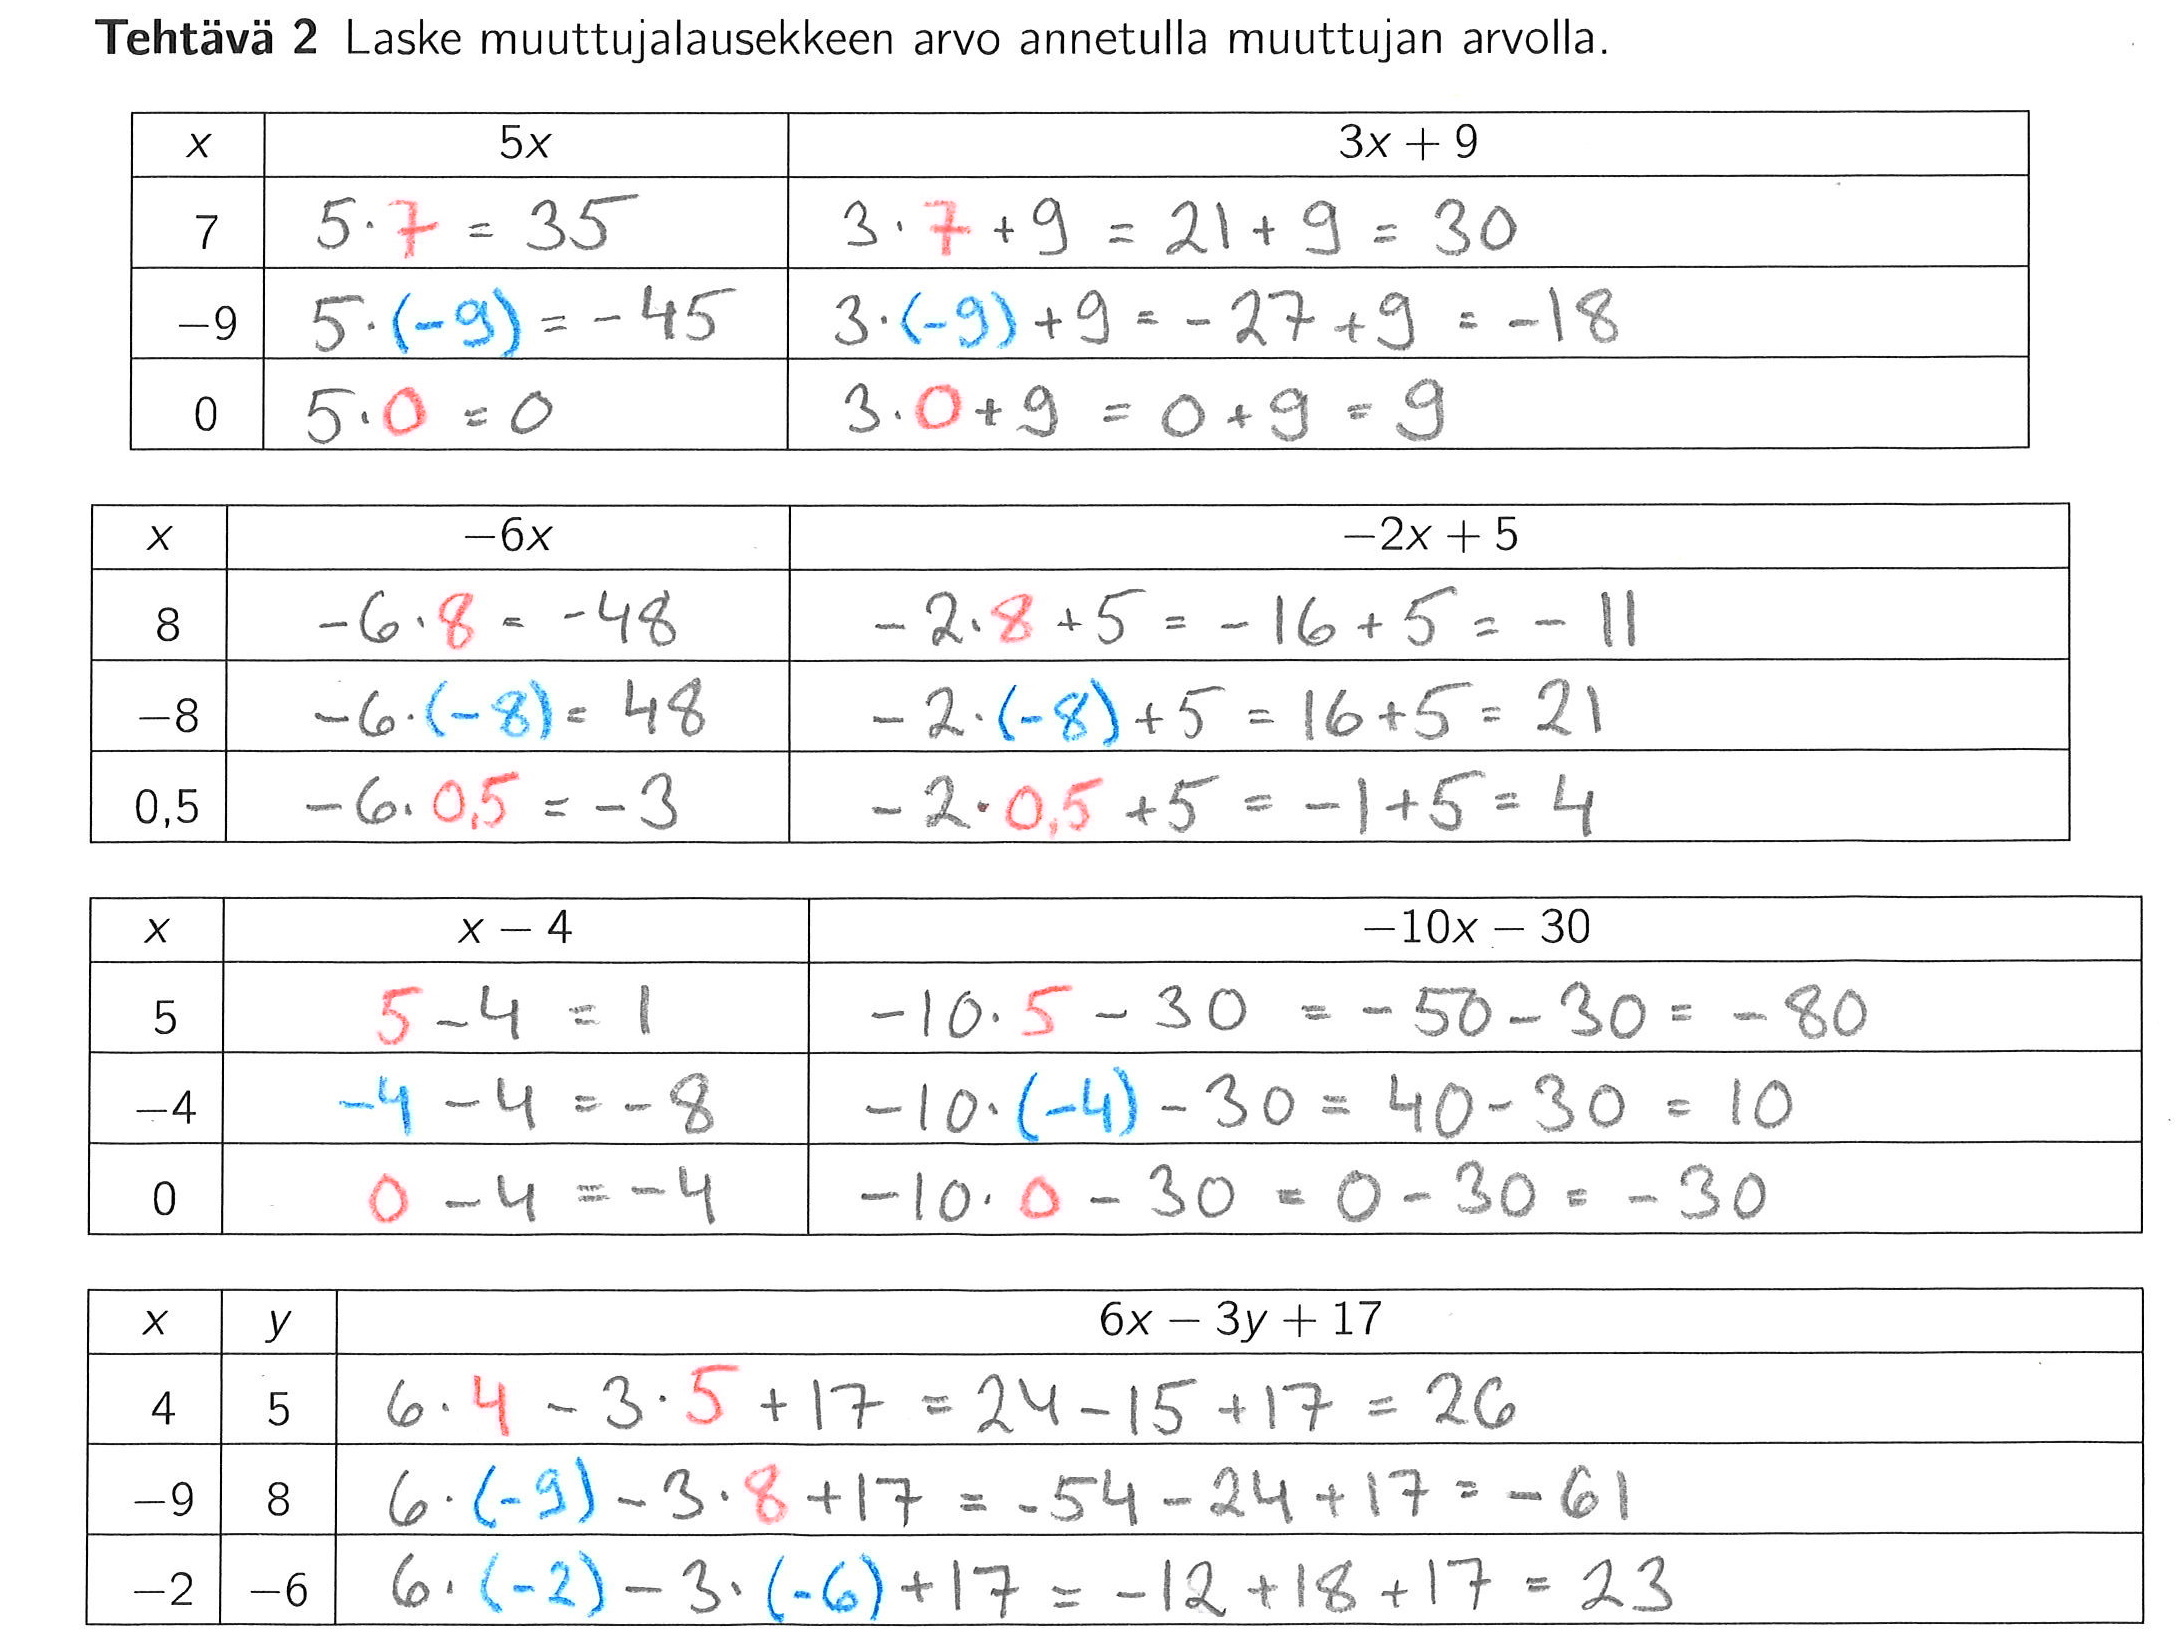 Tehtävä 2 Laske muuttujalausekkeen arvo annetulla muuttujan arvolla.
x 5x 3x + 9
7 5·7 = 35 3·7+9 = 21+9 = 30
−9 5·(-9) = -45 3·(-9)+9 = -27+9 = -18
0 5·0 = 0 3·0+9 = 0+9 = 9
x −6x −2x + 5
8 -6·8 = -48 -2·8+5 = -16+5 = -11
−8 -6·(-8) = 48 -2·(-8)+5 = 16+5 = 21
0,5 -6·0,5 = -3 -2·0,5+5 = -1+5 = 4
x x − 4 −10x − 30
5 5-4 = 1 -10·5-30 = -50-30 = -80
−4 -4-4 = -8 -10·(-4)-30 = 40-30 = 10
0 0-4 = -4 -10·0-30 = 0-30 = -30
x y 6x − 3y + 17
4 5 6·4-3·5+17 = 24-15+17 = 26
−9 8 6·(-9)-3·8+17 = -54-24+17 = -61
−2 −6 6·(-2)-3·(-6)+17 = -12+18+17 = 23